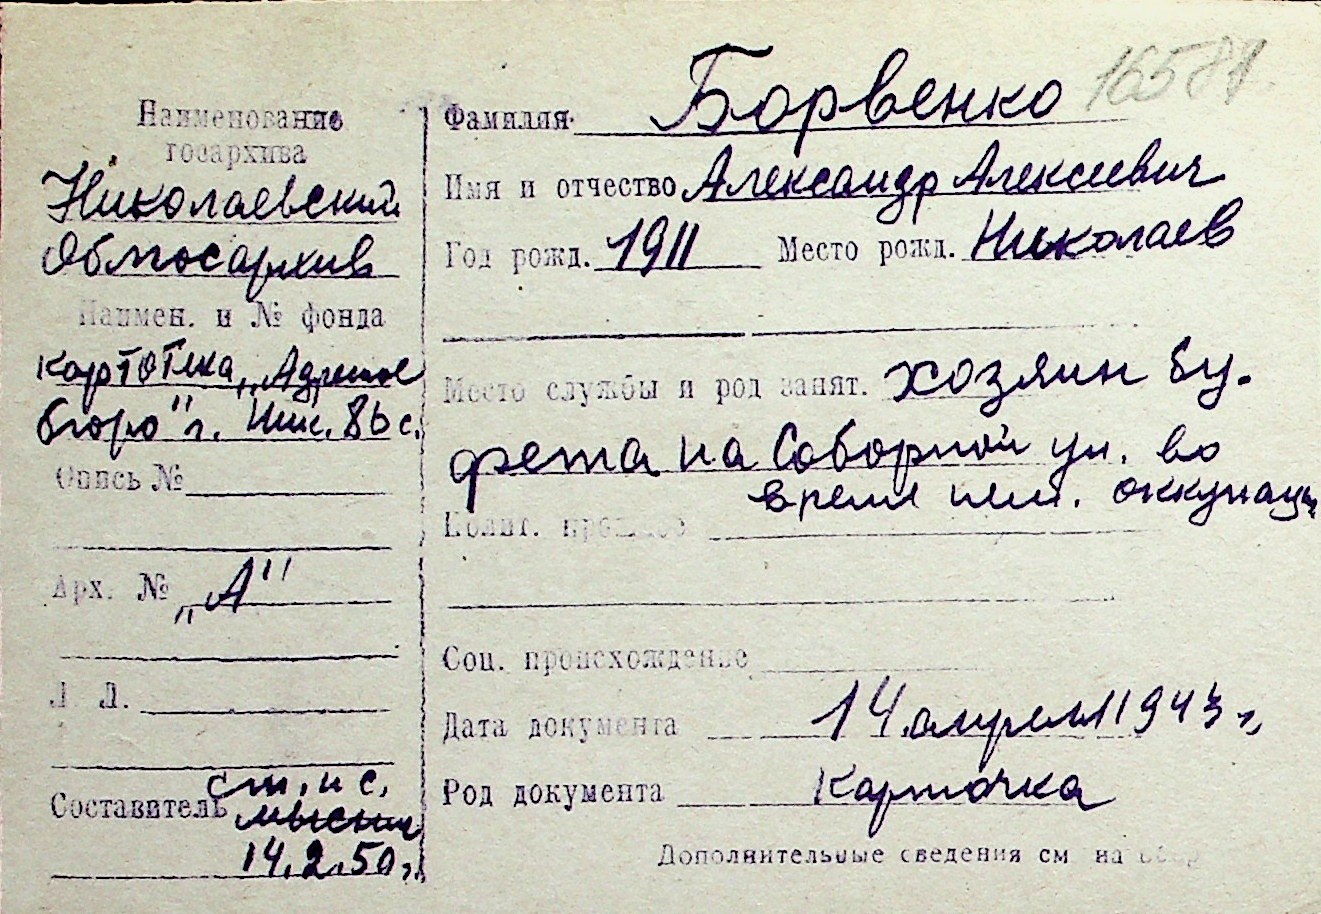 16581
Наименование
госархива
Николаевский
Облгосархив
Наимен. и № фонда
картотека „Адресное
бюро" г. Ник.
Опись №
Арх. № „А"
Л. Л.
Составитель ст. н с.
14.2.50 г.
Фамилия Борвенко
Имя и отчество Александр Алексеевич
Год рожд. 1911 Место рожд. Николаев
Место службы и род занят. хозяин бу-
фета на Соборной ул. во
время нем. оккупации
Полит. прошлое
Соц. происхождение
Дата документа 14 апреля 1943 г.
Род документа Карточка
Дополнительные сведения см на обор